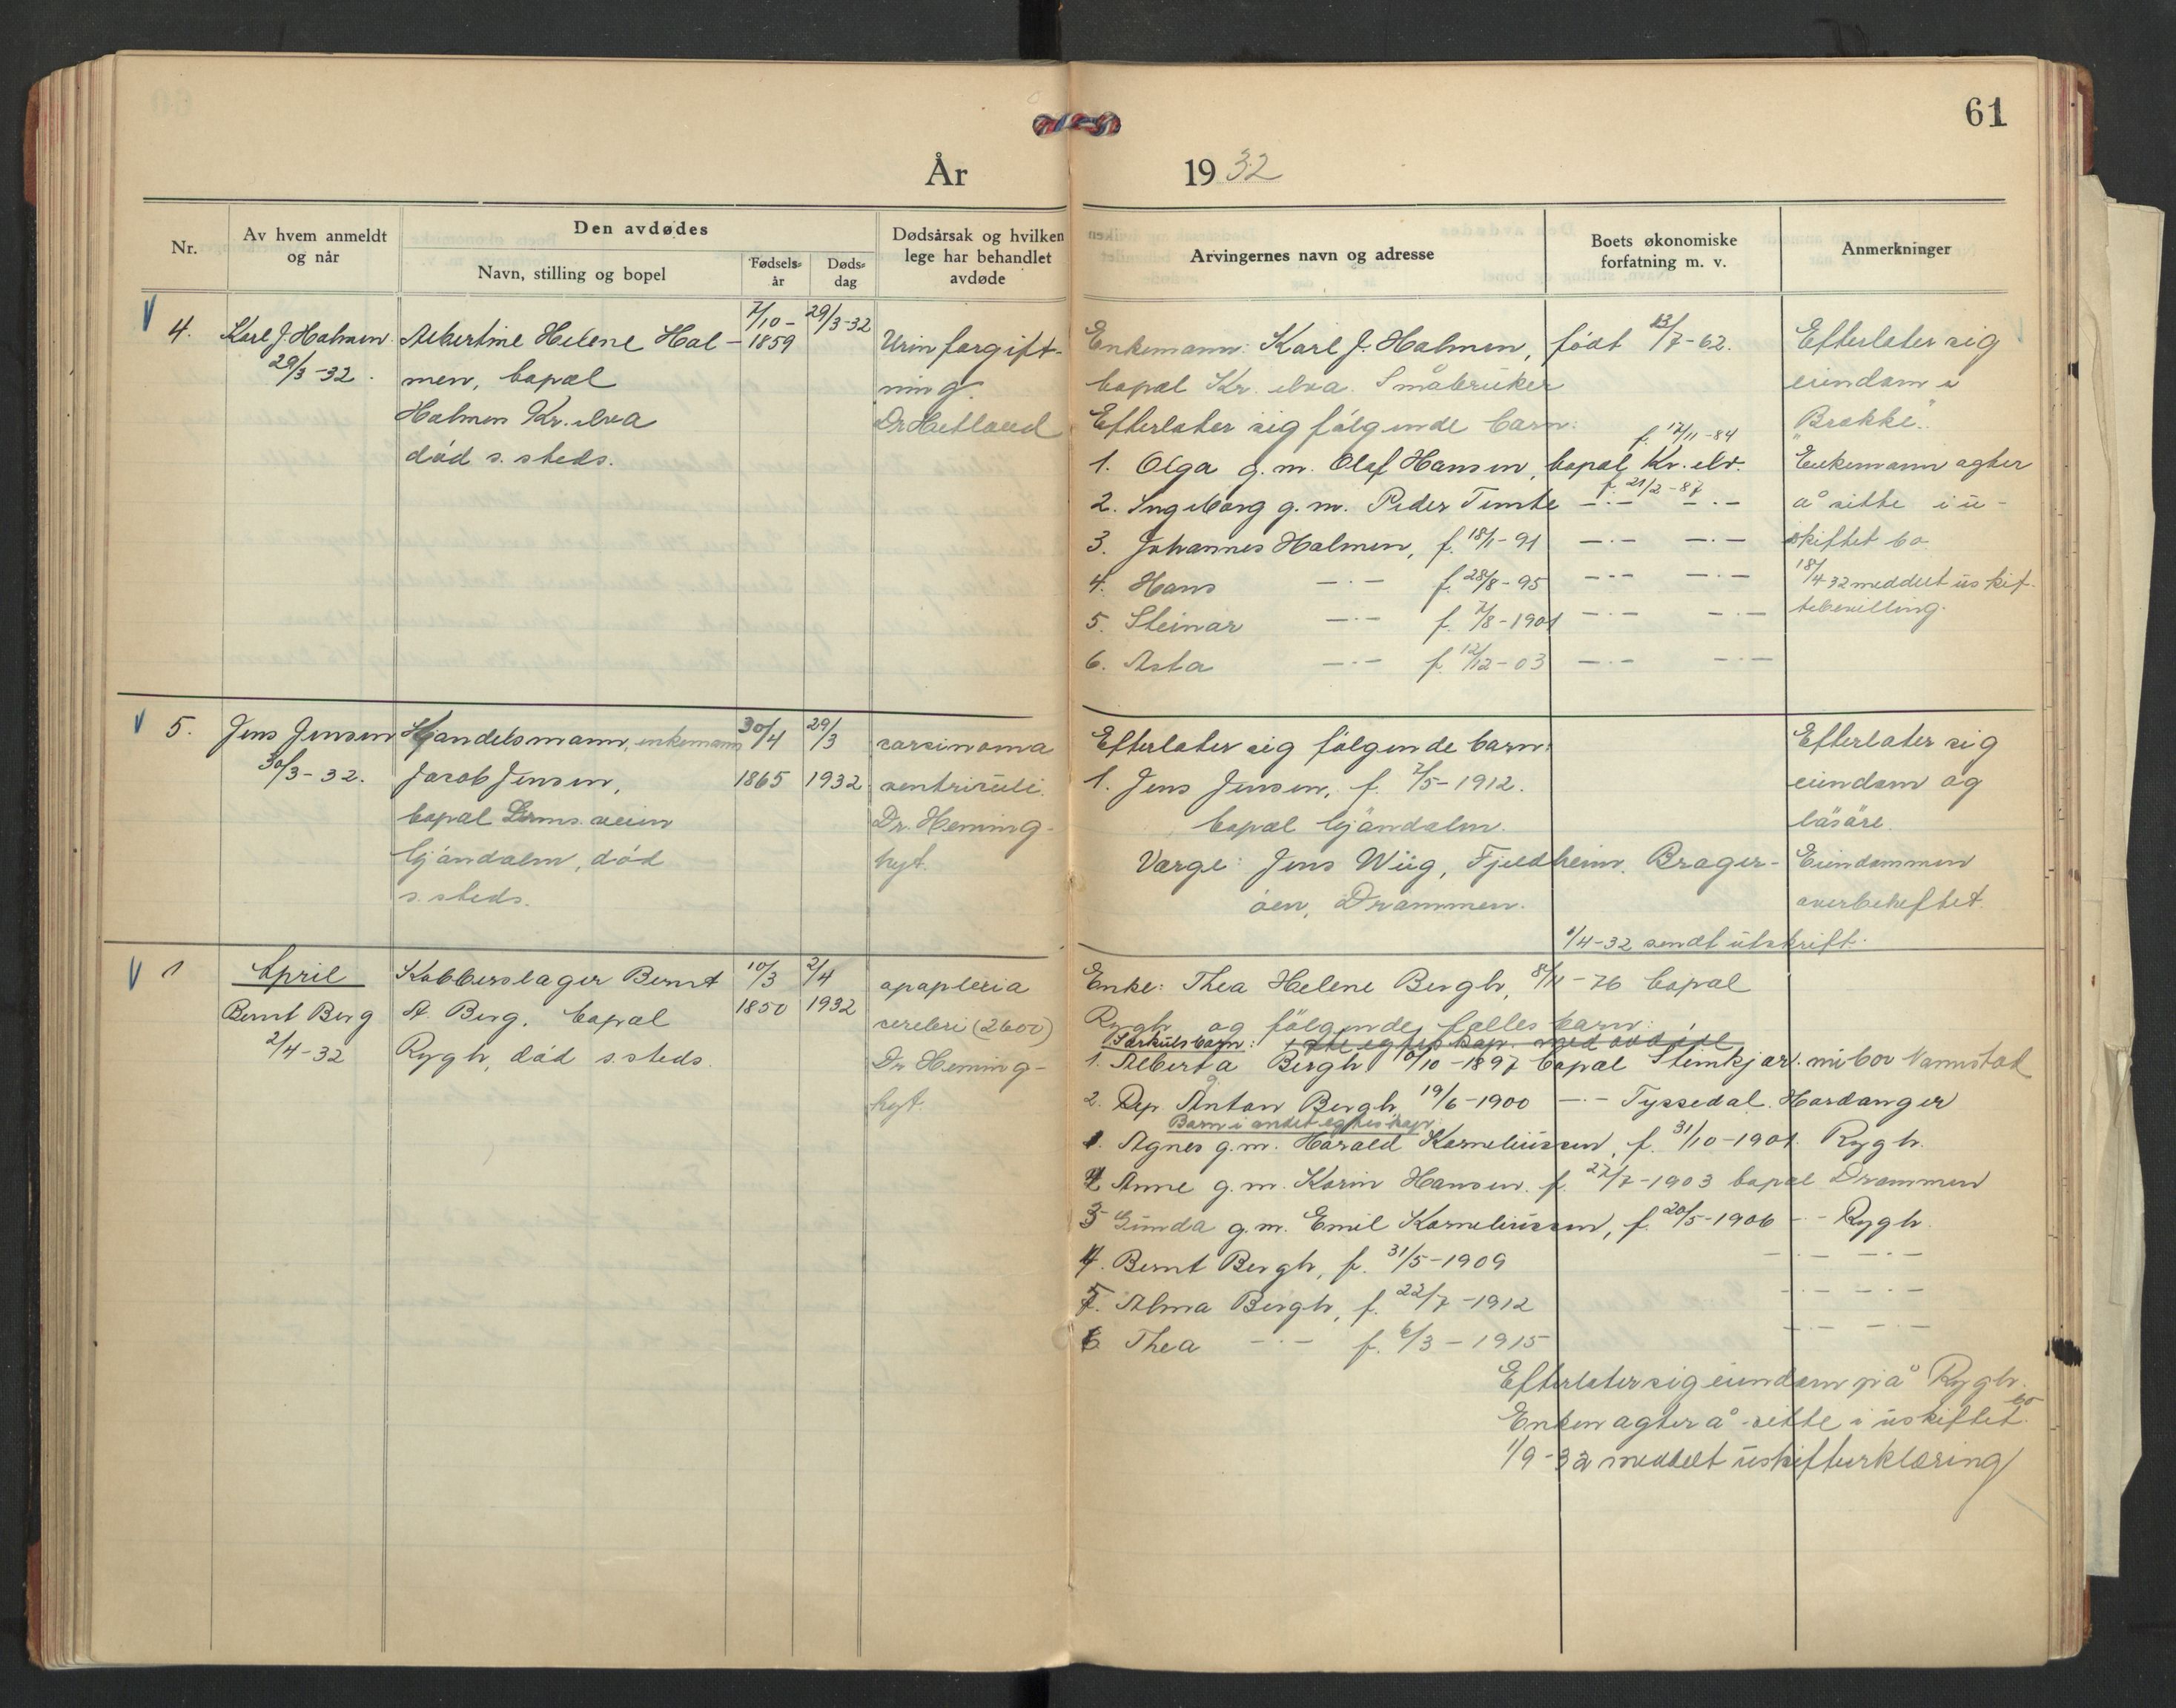 61
År 1932
Nr.
Av hvem anmeldt og når
Den avdødes
Navn, stilling og bopel
Fødsels-år
Døds-dag
Dødsårsak og hvilken lege har behandlet avdøde
Arvingernes navn og adresse
Boets økonomiske forfatning m. v.
Anmerkninger
4.
Karl J. Holmen
29/3-32.
Albertine Helene Hol-
men, bopæl
Holmen Kr. elva
død s. steds.
7/10-
1859
29/3-32
Urinforgift-
ning.
Dr Hetland
Enkemann: Karl J. Holmen, født 13/7-62.
bopæl Kr. elva. Småbruker
Efterlater sig følgende barn:
1. Olga g.m. Olaf Hansen, bopæl Kr. elv. f. 17/11-84
2. Ingeborg g.m. Peder Temte —·— —·— f. 21/2-87
3. Johannes Holmen, f. 18/1-91 —·— —·—
4. Hans —·— f. 28/8-95 —·— —·—
5. Steinar —·— f. 7/8-1901 —·— —·—
6. Asta —·— f. 12/12-03 —·— —·—
Efterlater sig
eiendom i
"Brekke".
Enkemann agter
å sitte i u-
skiftet bo.
18/4 32 meddelt uskif-
tebevilling.
5.
Jens Jensen
30/3-32.
Handelsmann, enkemann
Jacob Jensen,
bopæl Lerms. veien
Gjøndalen, død
s. steds.
30/4
1865
29/3
1932
carcinoma
ventriculi.
Dr. Heming-
hyt.
Efterlater sig følgende barn:
1. Jens Jensen, f. 7/5-1912.
bopæl Gjøndalen.
Verge: Jens Wiig, Fjeldheim. Brager-
øen, Drammen.
/4-32 sendt utskrift.
Efterlater sig
eiendom og
løsøre.
Eiendommen
overbeheftet.
1
April
Bernt Berg
2/4-32
Kobberslager Bernt
A. Berg. bopæl
Rygh, død s. steds.
10/3
1850
2/4
1932
apoplexia
cerebri (2600)
Dr Heming-
hyt.
Enke: Thea Helene Bergh, 8/11-76 bopæl
Rygh og følgende felles barn:
Særkulsbarn:
1. Alberta Bergh 10/10-1897 bopæl Steinkjær.
2. Anton Bergh 19/6-1900 —·— Tyssedal. Hardanger
Barn i andet egteskap:
1. Agnes g.m. Harald Korneliussen, f. 31/10-1901. Rygh.
2 Anne g.m. Karin Hansen. f. 27/7-1903 bopæl Drammen
3 Gunda g.m. Emil Korneliussen, f. 20/5-1906 —·— Rygh.
4. Bernt Bergh, f. 31/5-1909 —·— —·—
5. Alma Bergh, f. 22/7-1912 —·— —·—
6 Thea —·— f. 6/3-1915 —·— —·—
Efterlater sig eiendom på Rygh.
Enken agter å sitte i uskiftet bo.
1/9-32 meddelt uskifterklæring